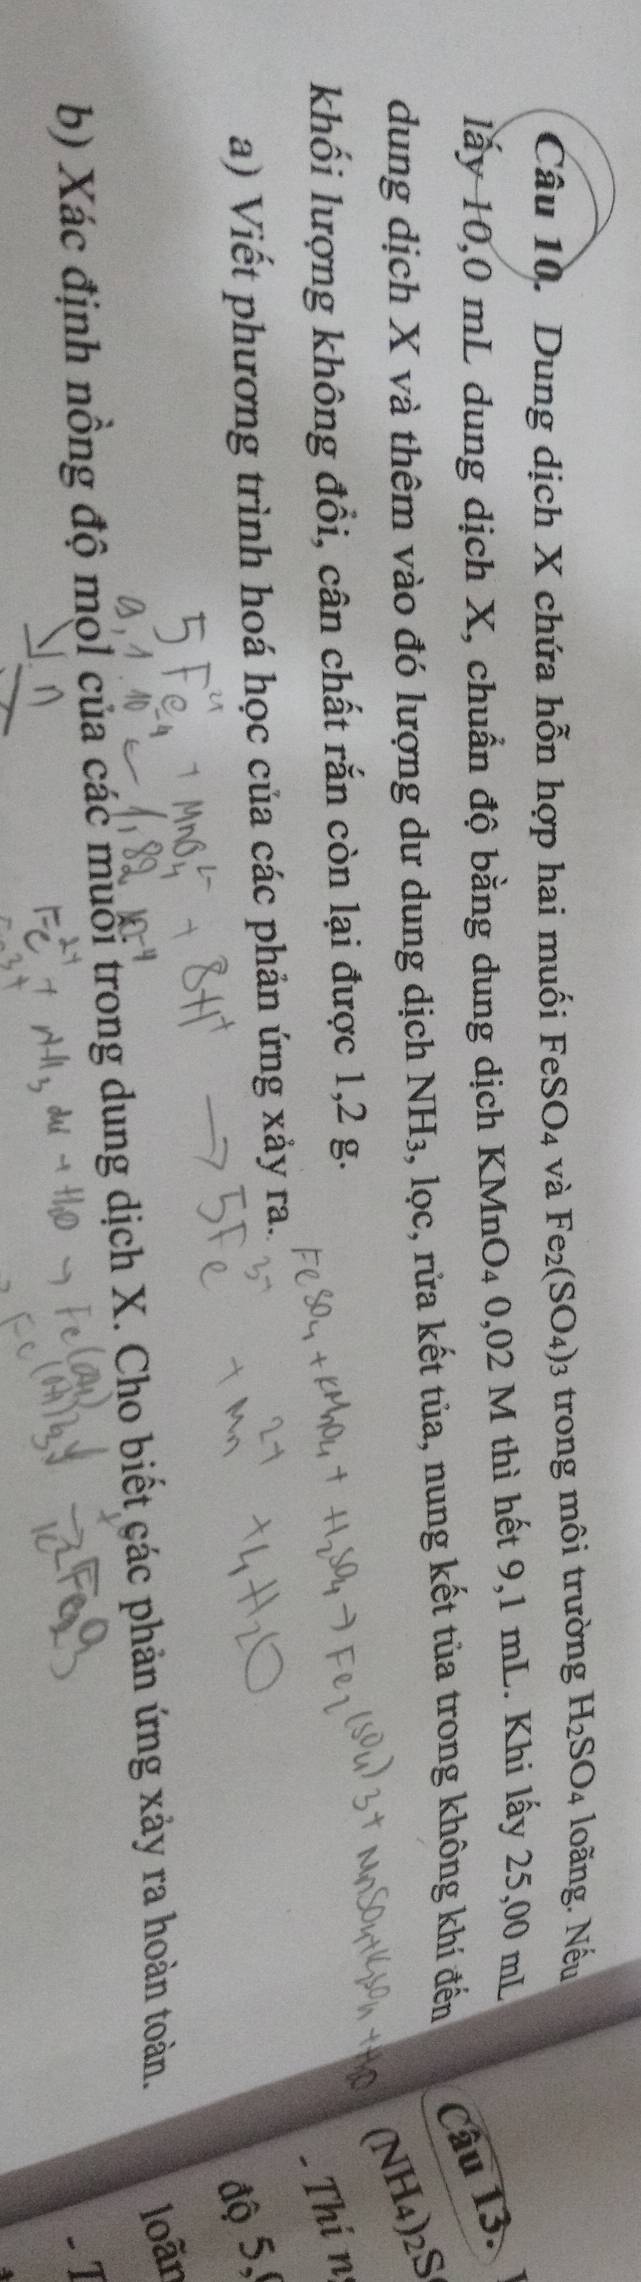 Câu 10. Dung dịch X chứa hỗn hợp hai muối FeSO4 và Fe2(SO4)3 trong môi trường H2SO4 loãng. Nếu
lấy 10,0 mL dung dịch X, chuẩn độ bằng dung dịch KMnO4 0,02 M thì hết 9,1 mL. Khi lấy 25,00 mL
dung dịch X và thêm vào đó lượng dư dung dịch NH3, lọc, rửa kết tủa, nung kết tủa trong không khí đến
khối lượng không đổi, cân chất rắn còn lại được 1,2 g.
a) Viết phương trình hoá học của các phản ứng xảy ra.
FeSO4 + KMnO4 + H2SO4 → Fe2(SO4)3 + MnSO4 + K2SO4 + H2O
5Fe2+ + MnO4- + 8H+ → 5Fe3+ + Mn2+ + 4H2O
9,1 10-4 ← 1,82 10-4
b) Xác định nồng độ mol của các muối trong dung dịch X. Cho biết các phản ứng xảy ra hoàn toàn.
Fe2+ + NH3 dư + H2O → Fe(OH)2 → Fe2O3
Câu 13.
(NH4)2S
- Thí n
độ 5,
loãn